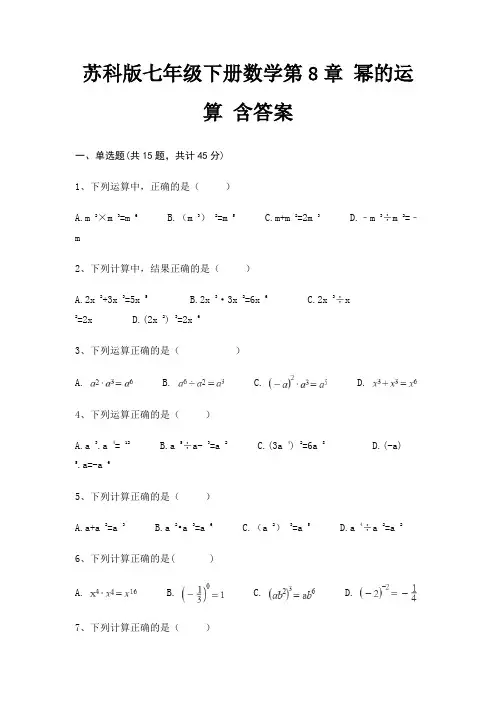 苏科版七年级下册数学第8章 幂的运
算 含答案
一、单选题(共15题，共计45分)
1、下列运算中，正确的是（ ）
A.m ²×m ³=m ⁶ B.（m ³） ²=m ⁵ C.m+m ²=2m ³ D.﹣m ³÷m ²=﹣
m
2、下列计算中，结果正确的是（ ）
A.2x ²+3x ³=5x ⁵ B.2x ³·3x ²=6x ⁶ C.2x ³÷x
²=2x D.(2x ²) ³=2x ⁶
3、下列运算正确的是（ ）
A. a²·a³=a⁶ B. a⁶÷a²=a³ C. (-a)²·a³=a⁵ D. x³+x³=x⁶
4、下列运算正确的是（ ）
A.a ³.a ⁴= ¹² B.a ⁵÷a- ³=a ² C.(3a ⁴) ²=6a ⁸ D.(-a)
⁵.a=-a ⁶
5、下列计算正确的是（ ）
A.a+a ²=a ³ B.a ²•a ³=a ⁶ C.（a ²） ³=a ⁵ D.a ⁴÷a ²=a ²
6、下列计算正确的是( )
A. x⁴·x⁴=x¹⁶ B. (-1/3)⁰=1 C. (ab²)³=ab⁶ D. (-2)⁻²=-1/4
7、下列计算正确的是（ ）